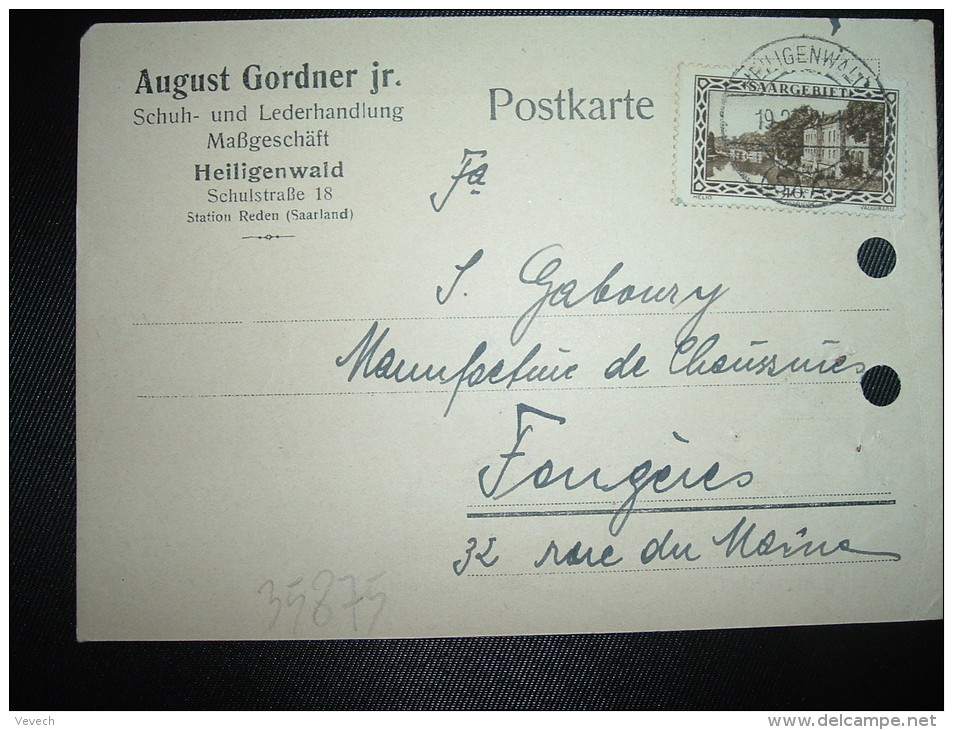 August Gordner jr.
Schuh- und Lederhandlung
Maßgeschäft
Heiligenwald
Schulstraße 18
Station Reden (Saarland)
Postkarte
HEILIGENWALD
SAARGEBIET
19.2
40
HELIO
VAUGIRARD
Fa
S. Gaboury
Manufacture de Chaussures
Fougères
32 rue du Maine
35875
Vevech
www.delcampe.net